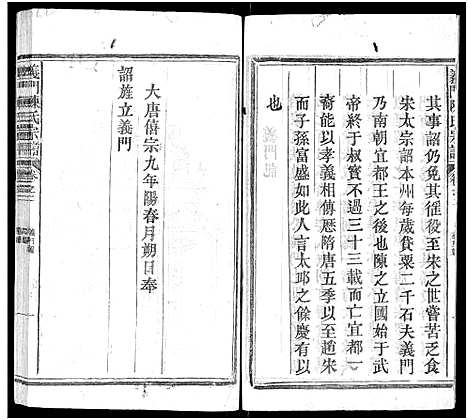 義門陳氏宗譜
其事詔仍免其徭役至宋之世嘗苦乏食
宋太宗詔本州每歲貸粟二千石夫義門
乃南朝宜都王之後也陳之立國始于武
帝終于叔寳不過三十三載而亡宜都一
裔能以孝義相傳歷隋唐五季以至趙宋
而子孫富盛如此人言太邱之餘慶有以
也
義門記
大唐僖宗九年陽春月朔日奉
詔旌立義門
義門陳氏宗譜